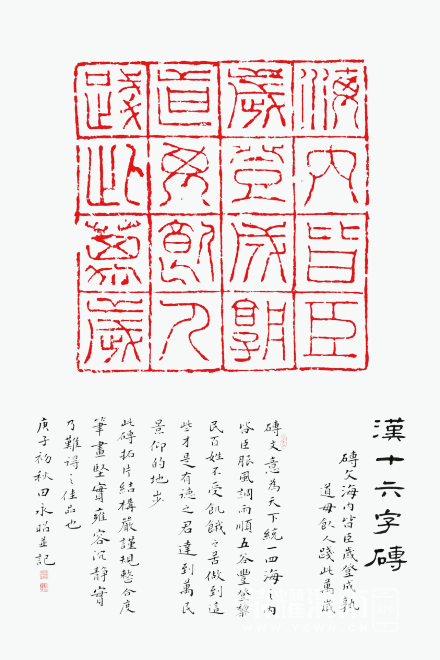 海內皆臣
歲登成孰
道毋飢人
踐此萬歲
漢十六字磚
磚文海內皆臣歲登成孰
道毋飢人踐此萬歲
磚文意為天下統一四海之內
皆臣服風調雨順五谷豐登黎
民百姓不受飢餓之苦做到這
些才是有德之君達到萬民
景仰的地步
此磚拓片結構嚴謹規整合度
筆畫堅實雍容沉靜實
乃難得之佳品也
庚子初秋田永昭並記